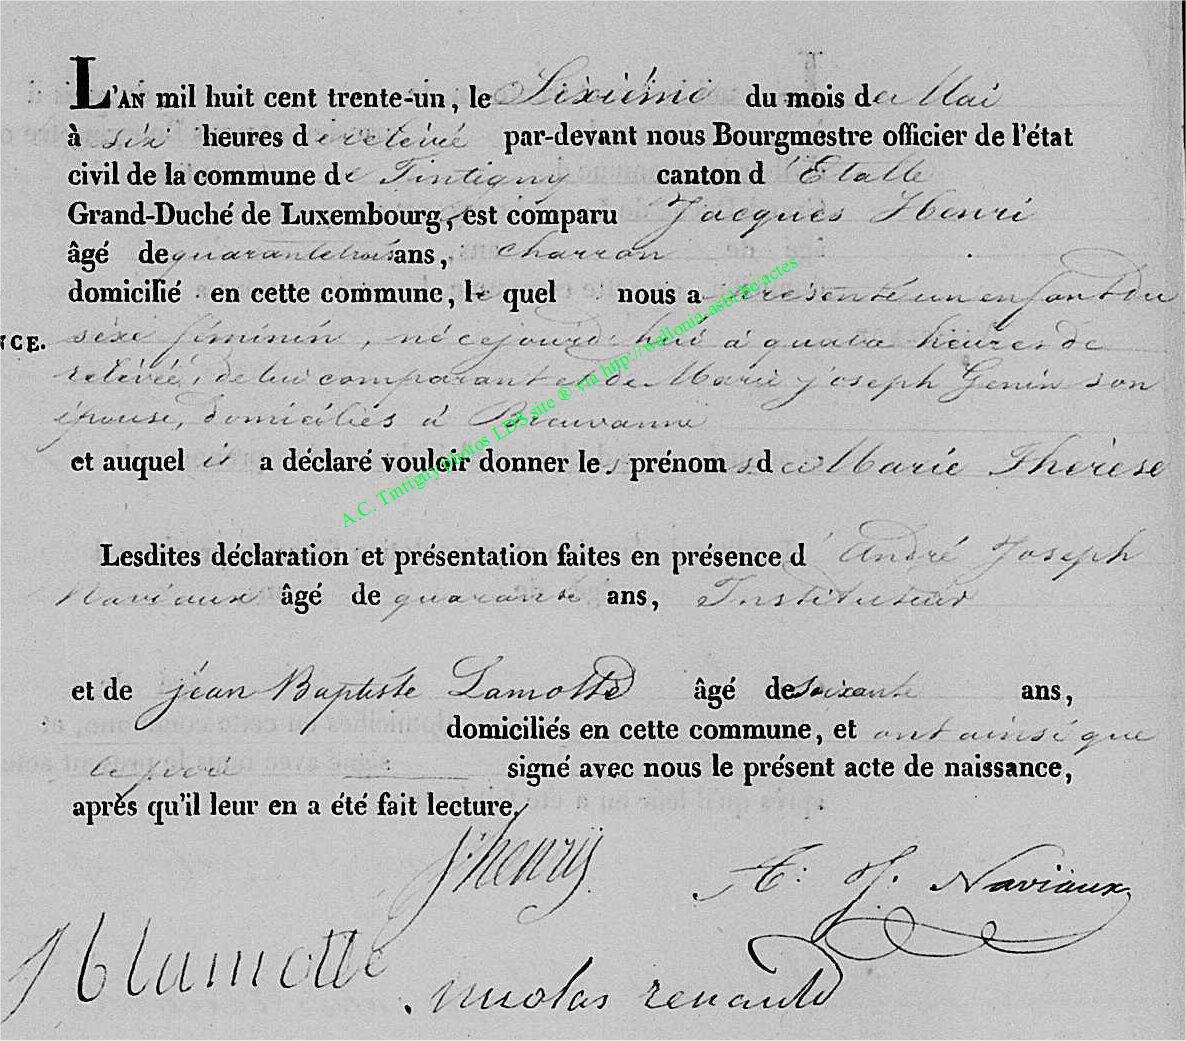 L'AN mil huit cent trente-un, le Sixiéme du mois de Mai
à six heures de relevée par-devant nous Bourgmestre officier de l'état
civil de la commune de Tintigny canton d'Etalle
Grand-Duché de Luxembourg, est comparu Jacques Henri
âgé de quarantetrois ans, charron
domicilié en cette commune, le quel nous a presenté un enfant du
NCE. sexe féminin, né cejourd'hui à quatre heures de
relevée, de lui comparant et de Marie joseph Genin son
épouse, domiciliés à Breuvanne
et auquel il a déclaré vouloir donner les prénoms de Marie Thérèse
Lesdites déclaration et présentation faites en présence d'André Joseph
Naviaux âgé de quarante ans, Instituteur
et de jean Baptiste Lamotte âgé de soixante ans,
domiciliés en cette commune, et ont ainsi que
le pere signé avec nous le présent acte de naissance,
après qu'il leur en a été fait lecture.
J. henry
A: J. Naviaux
J b lamotte
nicolas renauld
A.C. Tintigny photos LDS site ® via http://wallonia-asbl.be/actes